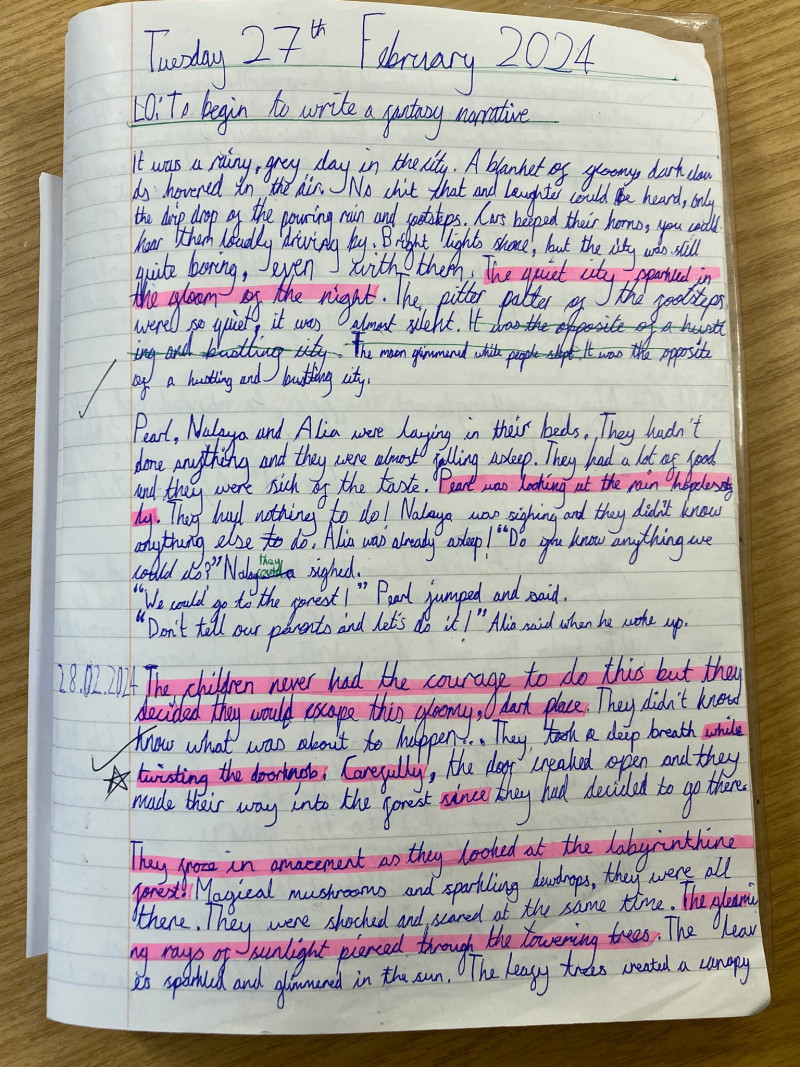 Tuesday 27th February 2024
LO: To begin to write a fantasy narrative
It was a rainy, grey day in the city. A blanket of gloomy, dark clou
ds hovered in the air. No chit that and laughter could be heard, only
the drip drop of the pouring rain and footsteps. Cars beeped their horns, you could
hear them loudly driving by. Bright lights shone, but the city was still
quite boring, even with them. The quiet city sparkled in
the gloom of the night. The pitter patter of the footsteps
were so quiet, it was almost silent. It was the opposite of a hustl
ing and bustling city. The moon glimmered while people slept. It was the opposite
of a hustling and bustling city.
Pearl, Nalaya and Alia were laying in their beds. They hadn't
done anything and they were almost falling asleep. They had a lot of food
and they were sick of the taste. Pearl was looking at the rain hopelessly
ly. They had nothing to do! Nalaya was sighing and they didn't know
anything else to do. Alia was already asleep! "Do you know anything we
they
could do?" Nalaya sighed.
"We could go to the forest!" Pearl jumped and said.
"Don't tell our parents and let's do it!" Alia said when he woke up.
28.02.2024 The children never had the courage to do this but they
decided they would escape this gloomy, dark place. They didn't know
know what was about to happen... They took a deep breath while
twisting the doorknob. Carefully, the door creaked open and they
made their way into the forest since they had decided to go there.
They froze in amazement as they looked at the labyrinthine
forest. Magical mushrooms and sparkling dewdrops, they were all
there. They were shocked and scared at the same time. The gleami
ng rays of sunlight pierced through the towering trees. The leav
es sparkled and glimmered in the sun. The leafy trees created a canopy